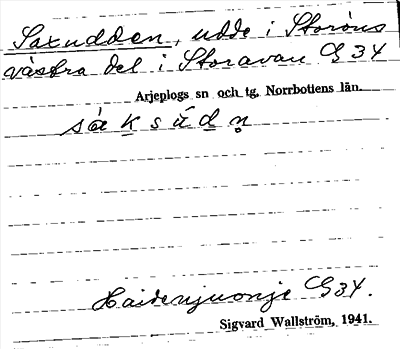 Saxudden, udde i Storöns
västra del i Storavan G 34
Arjeplogs sn och tg, Norrbottens län.
såksúdn̥
G 34.
Sigvard Wallström, 1941.